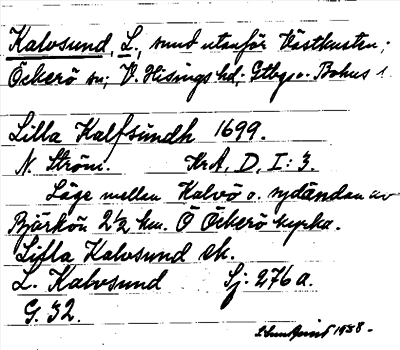 Kalvsund, L., sund utanför Västkusten;
Öckerö sn; V. Hisings hd; Gtbgs o. Bohus l.
Lilla Kalfsundh 1699.
N. Ström. KrA. D. I: 3.
Läge mellan Kalvö o. sydändan av
Björkön 2½ km. Ö Öckerö kyrka.
Lilla Kalvsund ek.
L. Kalvsund Sj: 276 a.
G. 32.
1938